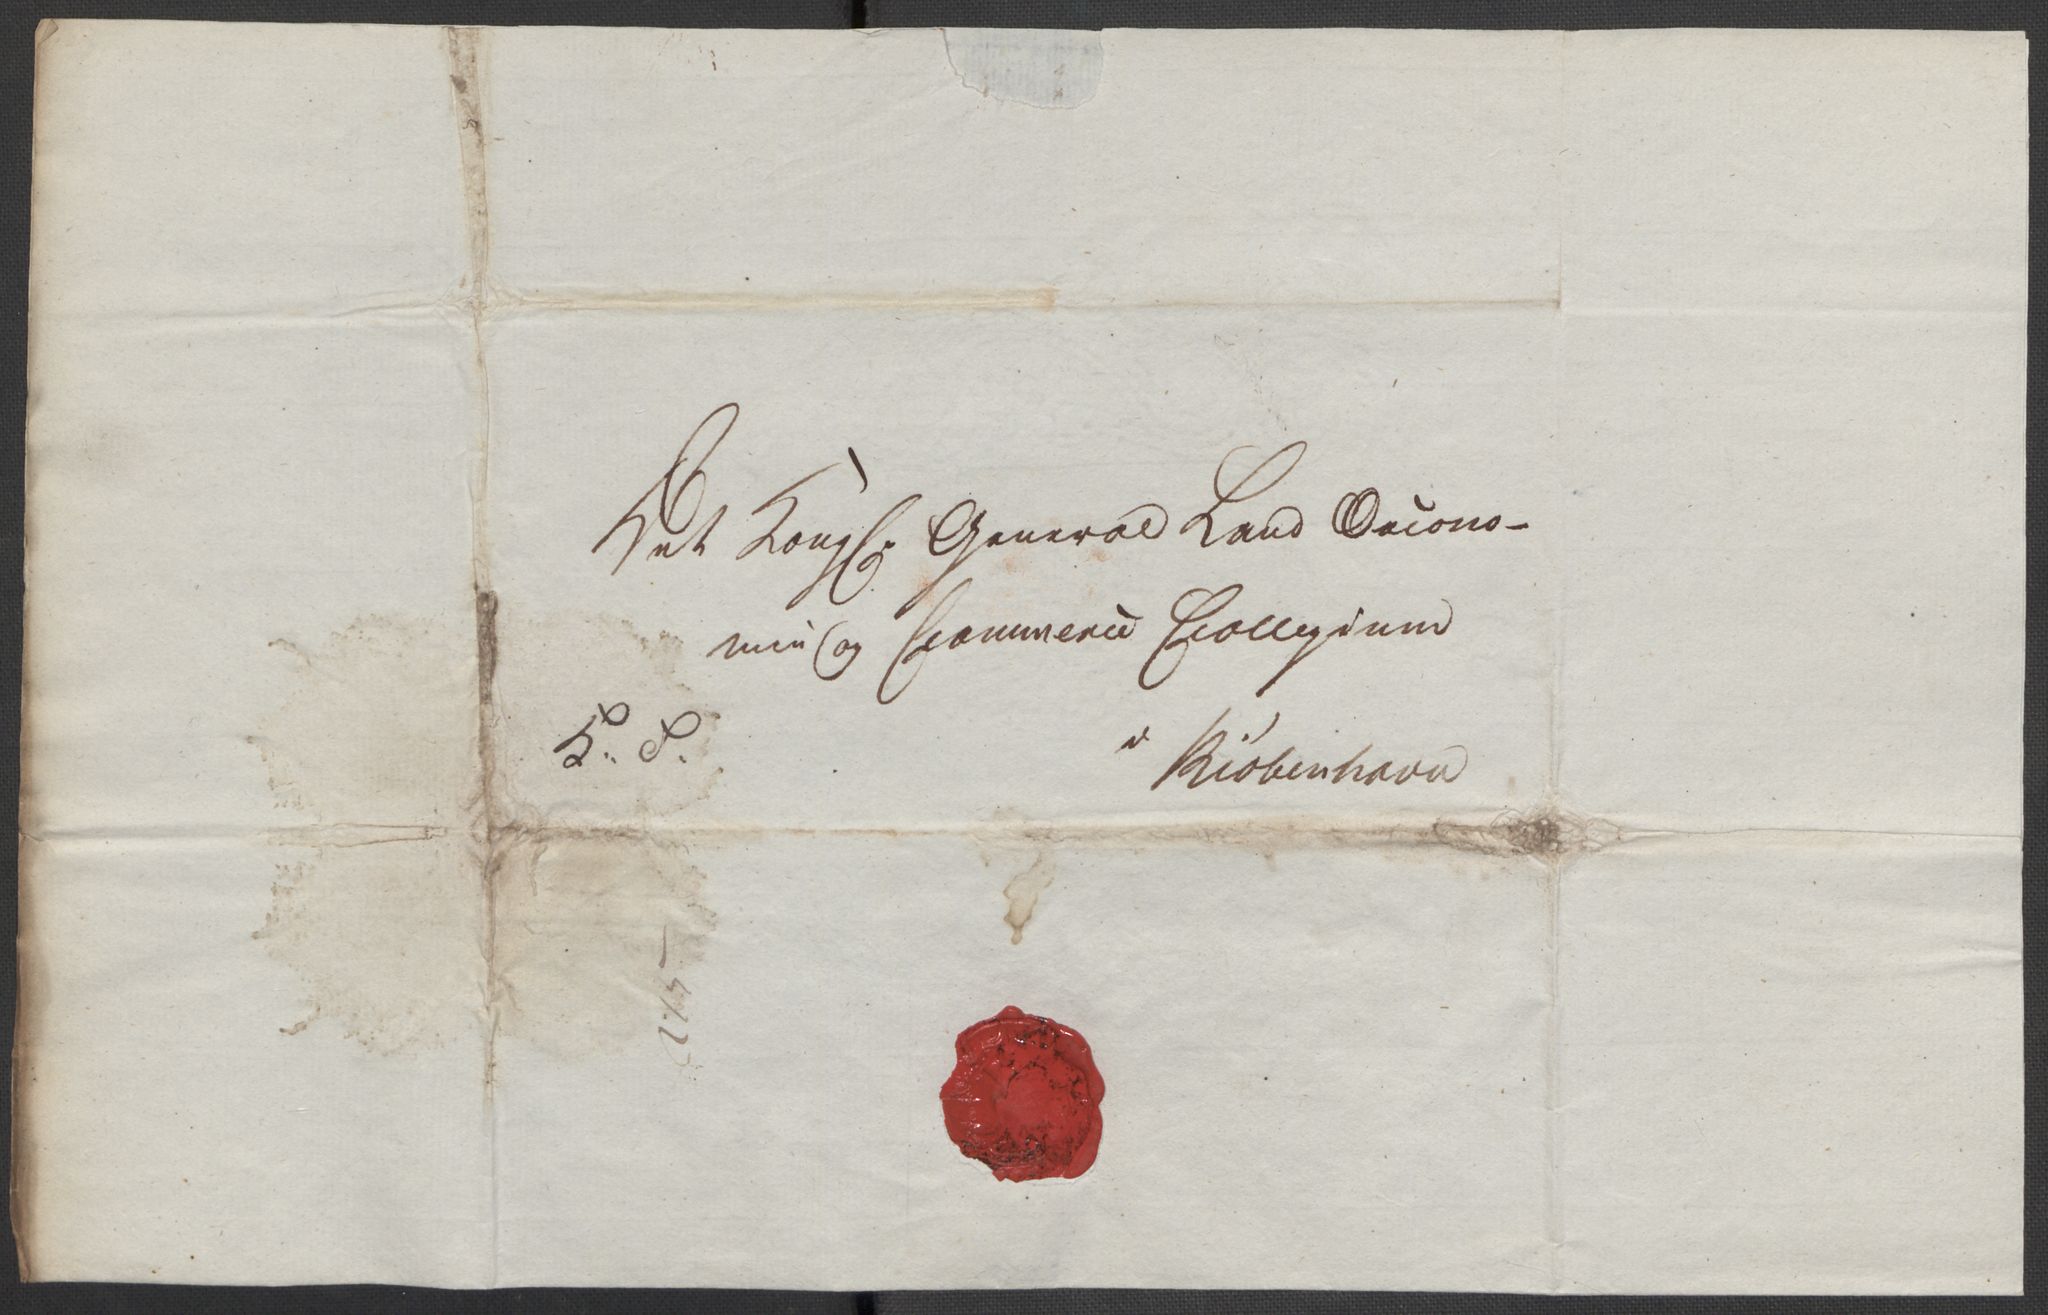 Det Kongl. General Land Oecono-
mie og Commerce Collegium
K. S.
i Kiöbenhavn